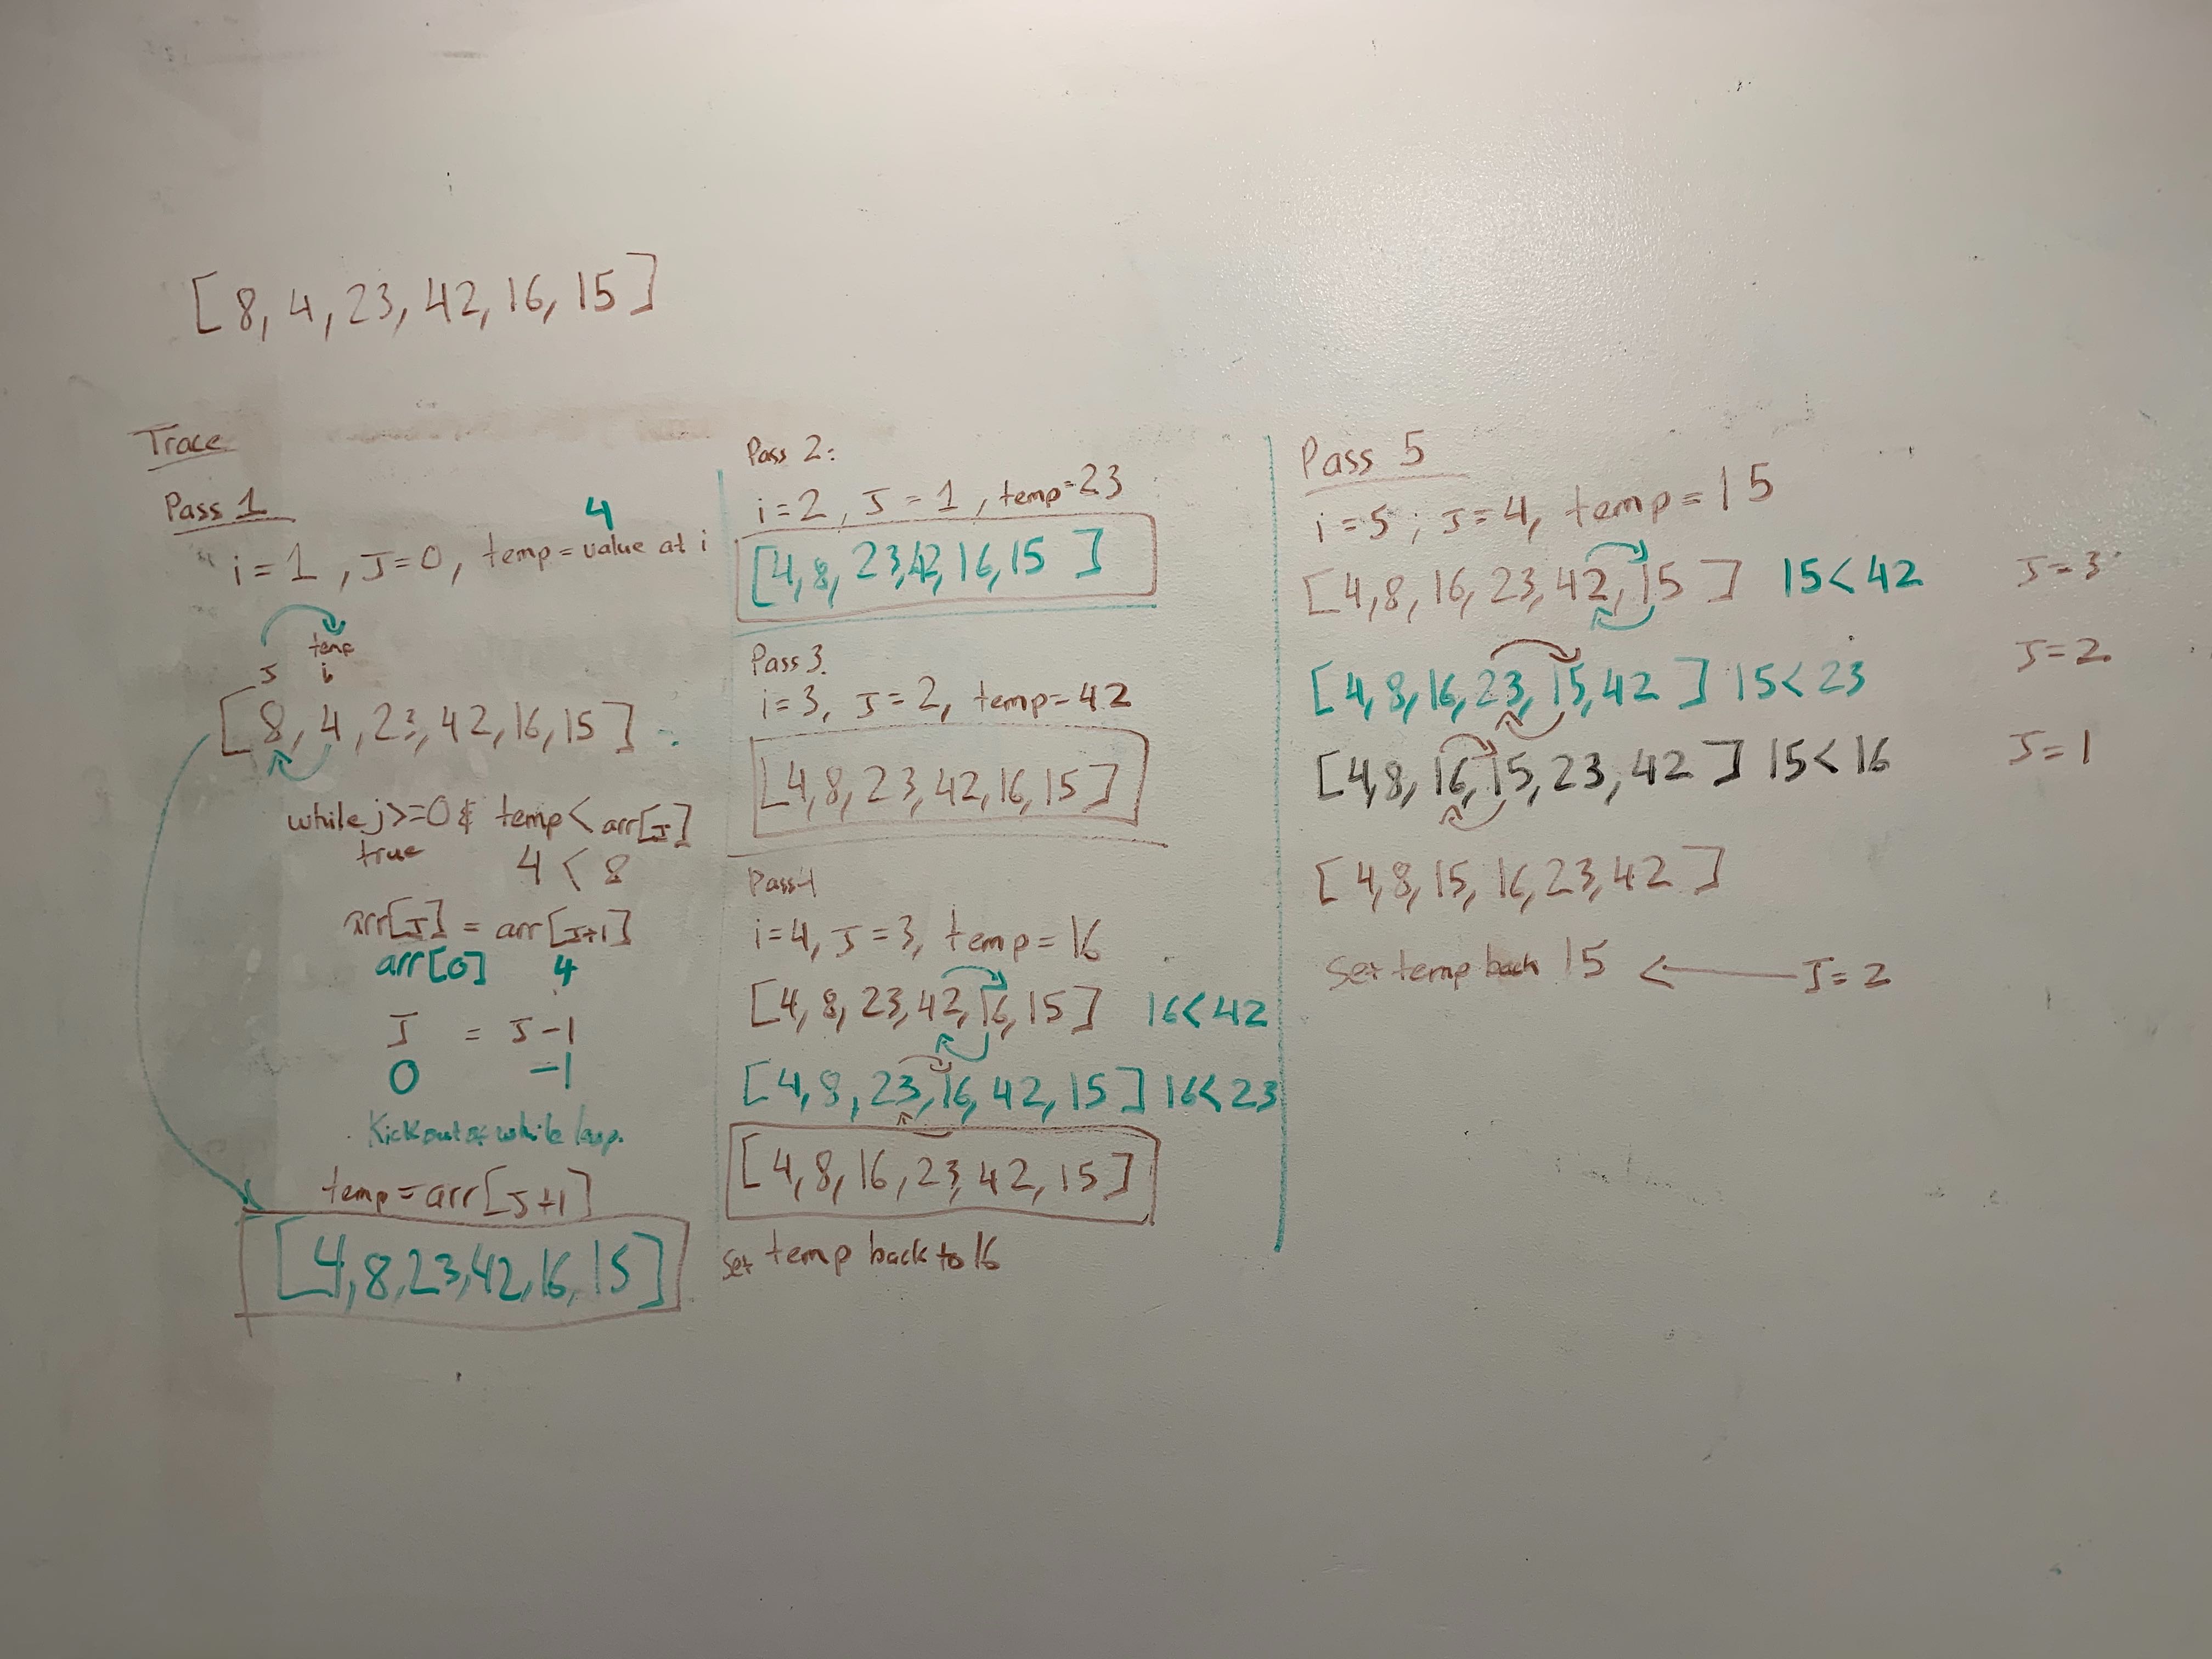 [8, 4, 23, 42, 16, 15]
Trace
Pass 1
4
i=1, J=0, temp= value at i
temp
J i
[8, 4, 23, 42, 16, 15]
while j>=0 & temp < arr[J]
true 4 < 8
arr[J] = arr[J+1]
arr[0] 4
J = J-1
0 -1
Kick out of while loop.
temp = arr[J+1]
[4, 8, 23, 42, 16, 15]
Pass 2:
i=2, J=1, temp=23
[4, 8, 23, 42, 16, 15]
Pass 3.
i=3, J=2, temp=42
[4, 8, 23, 42, 16, 15]
Pass 4
i=4, J=3, temp=16
[4, 8, 23, 42, 16, 15] 16<42
[4, 8, 23, 16, 42, 15] 16<23
[4, 8, 16, 23, 42, 15]
Set temp back to 16
Pass 5
i=5; J=4, temp=15
[4, 8, 16, 23, 42, 15] 15<42 J=3
[4, 8, 16, 23, 15, 42] 15<23 J=2
[4, 8, 16, 15, 23, 42] 15<16 J=1
[4, 8, 15, 16, 23, 42]
Set temp back 15 J=2